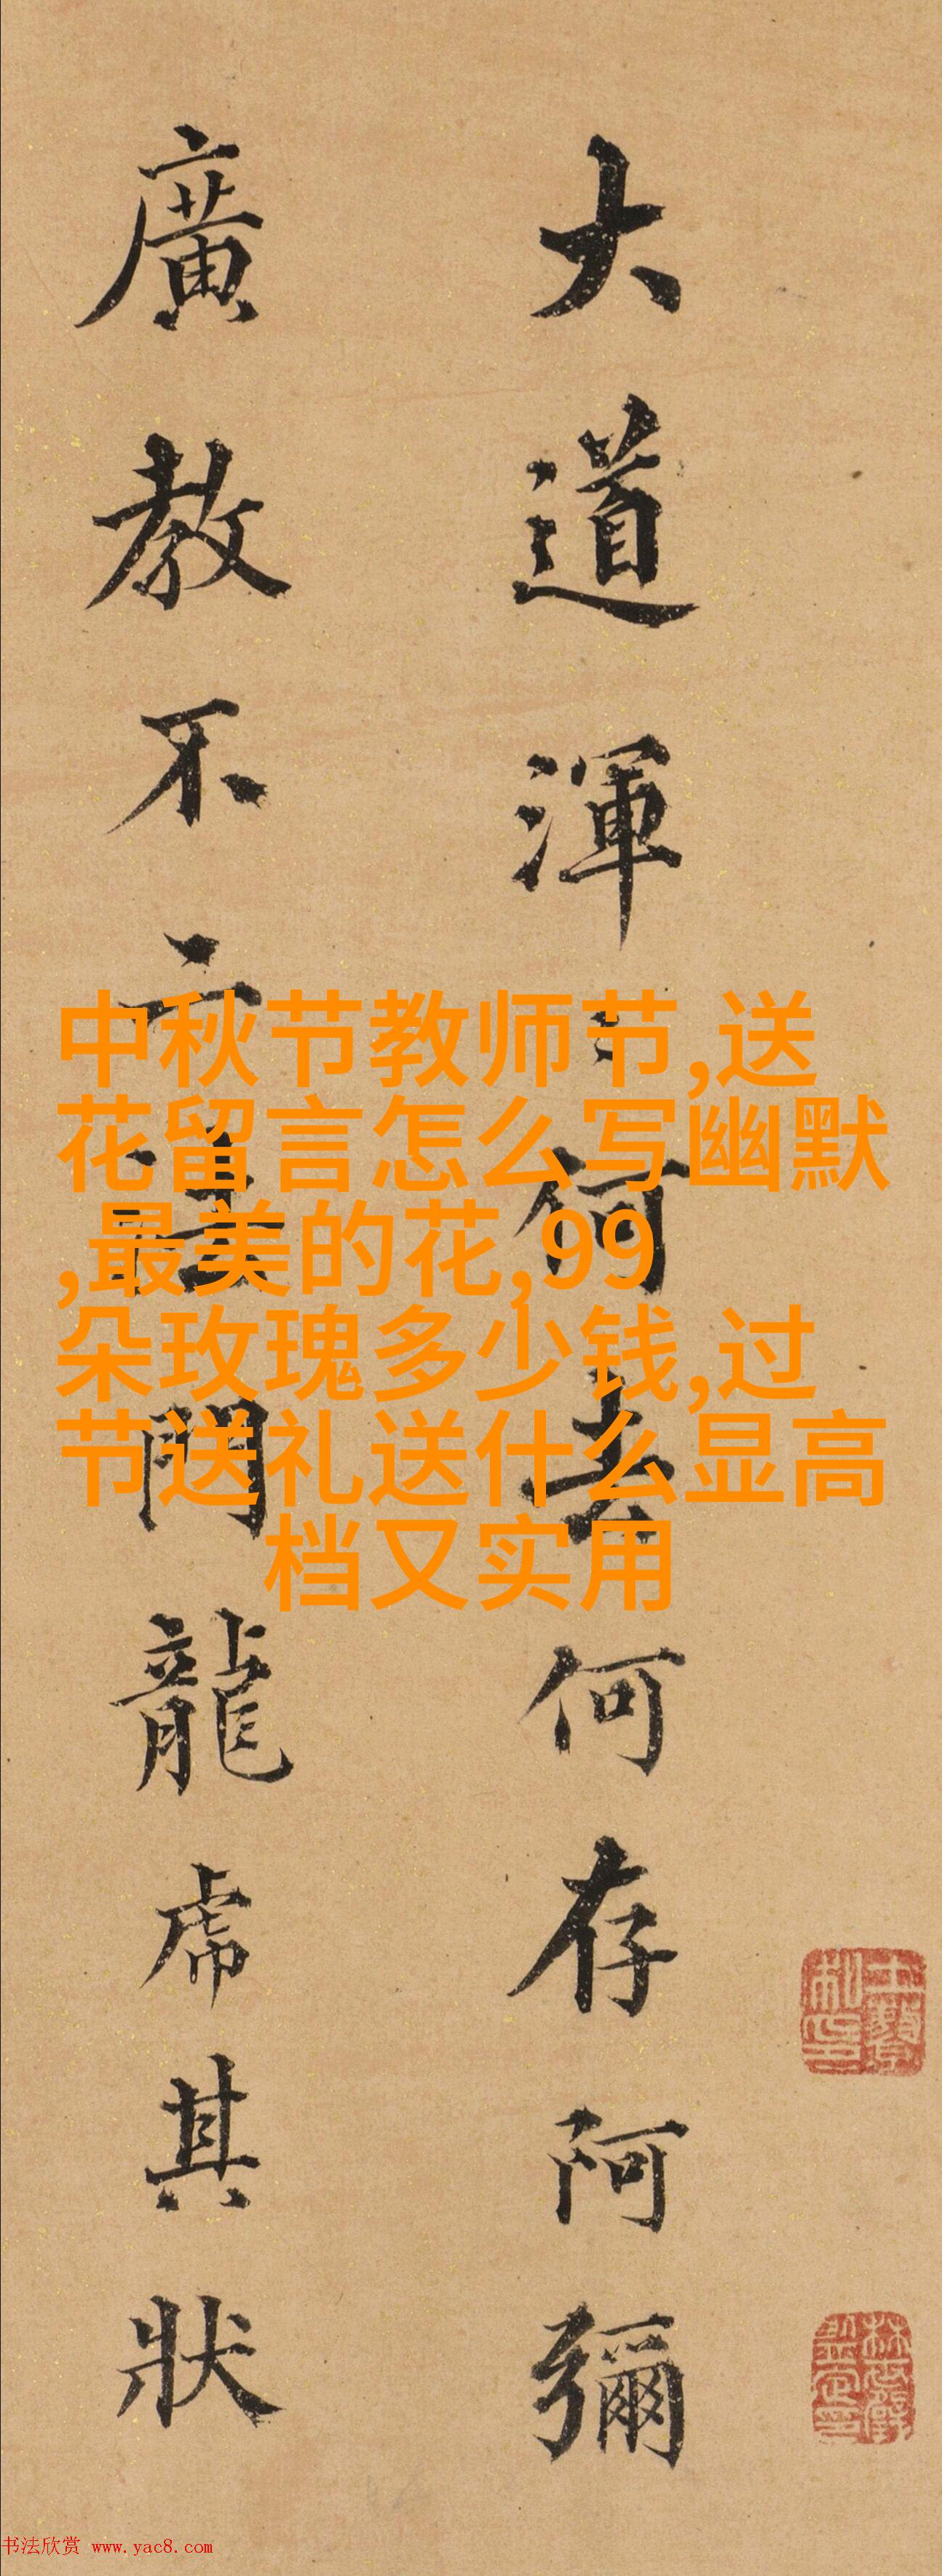 大道渾何去何存阿彌
廣教不門龍虎其狀
中秋节教师节,送
花留言怎么写幽默
,最美的花,99
朵玫瑰多少钱,过
节送礼送什么显高
档又实用
书法欣赏 www.yac8.com